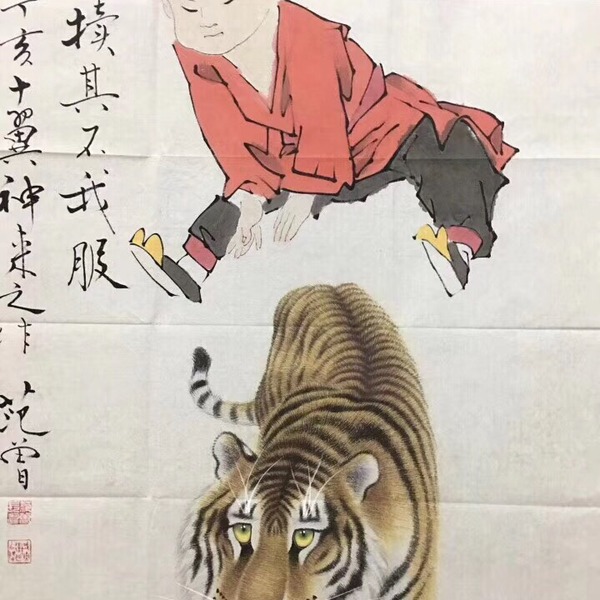 犢其不我服
丁亥十翼神来之作 范曾